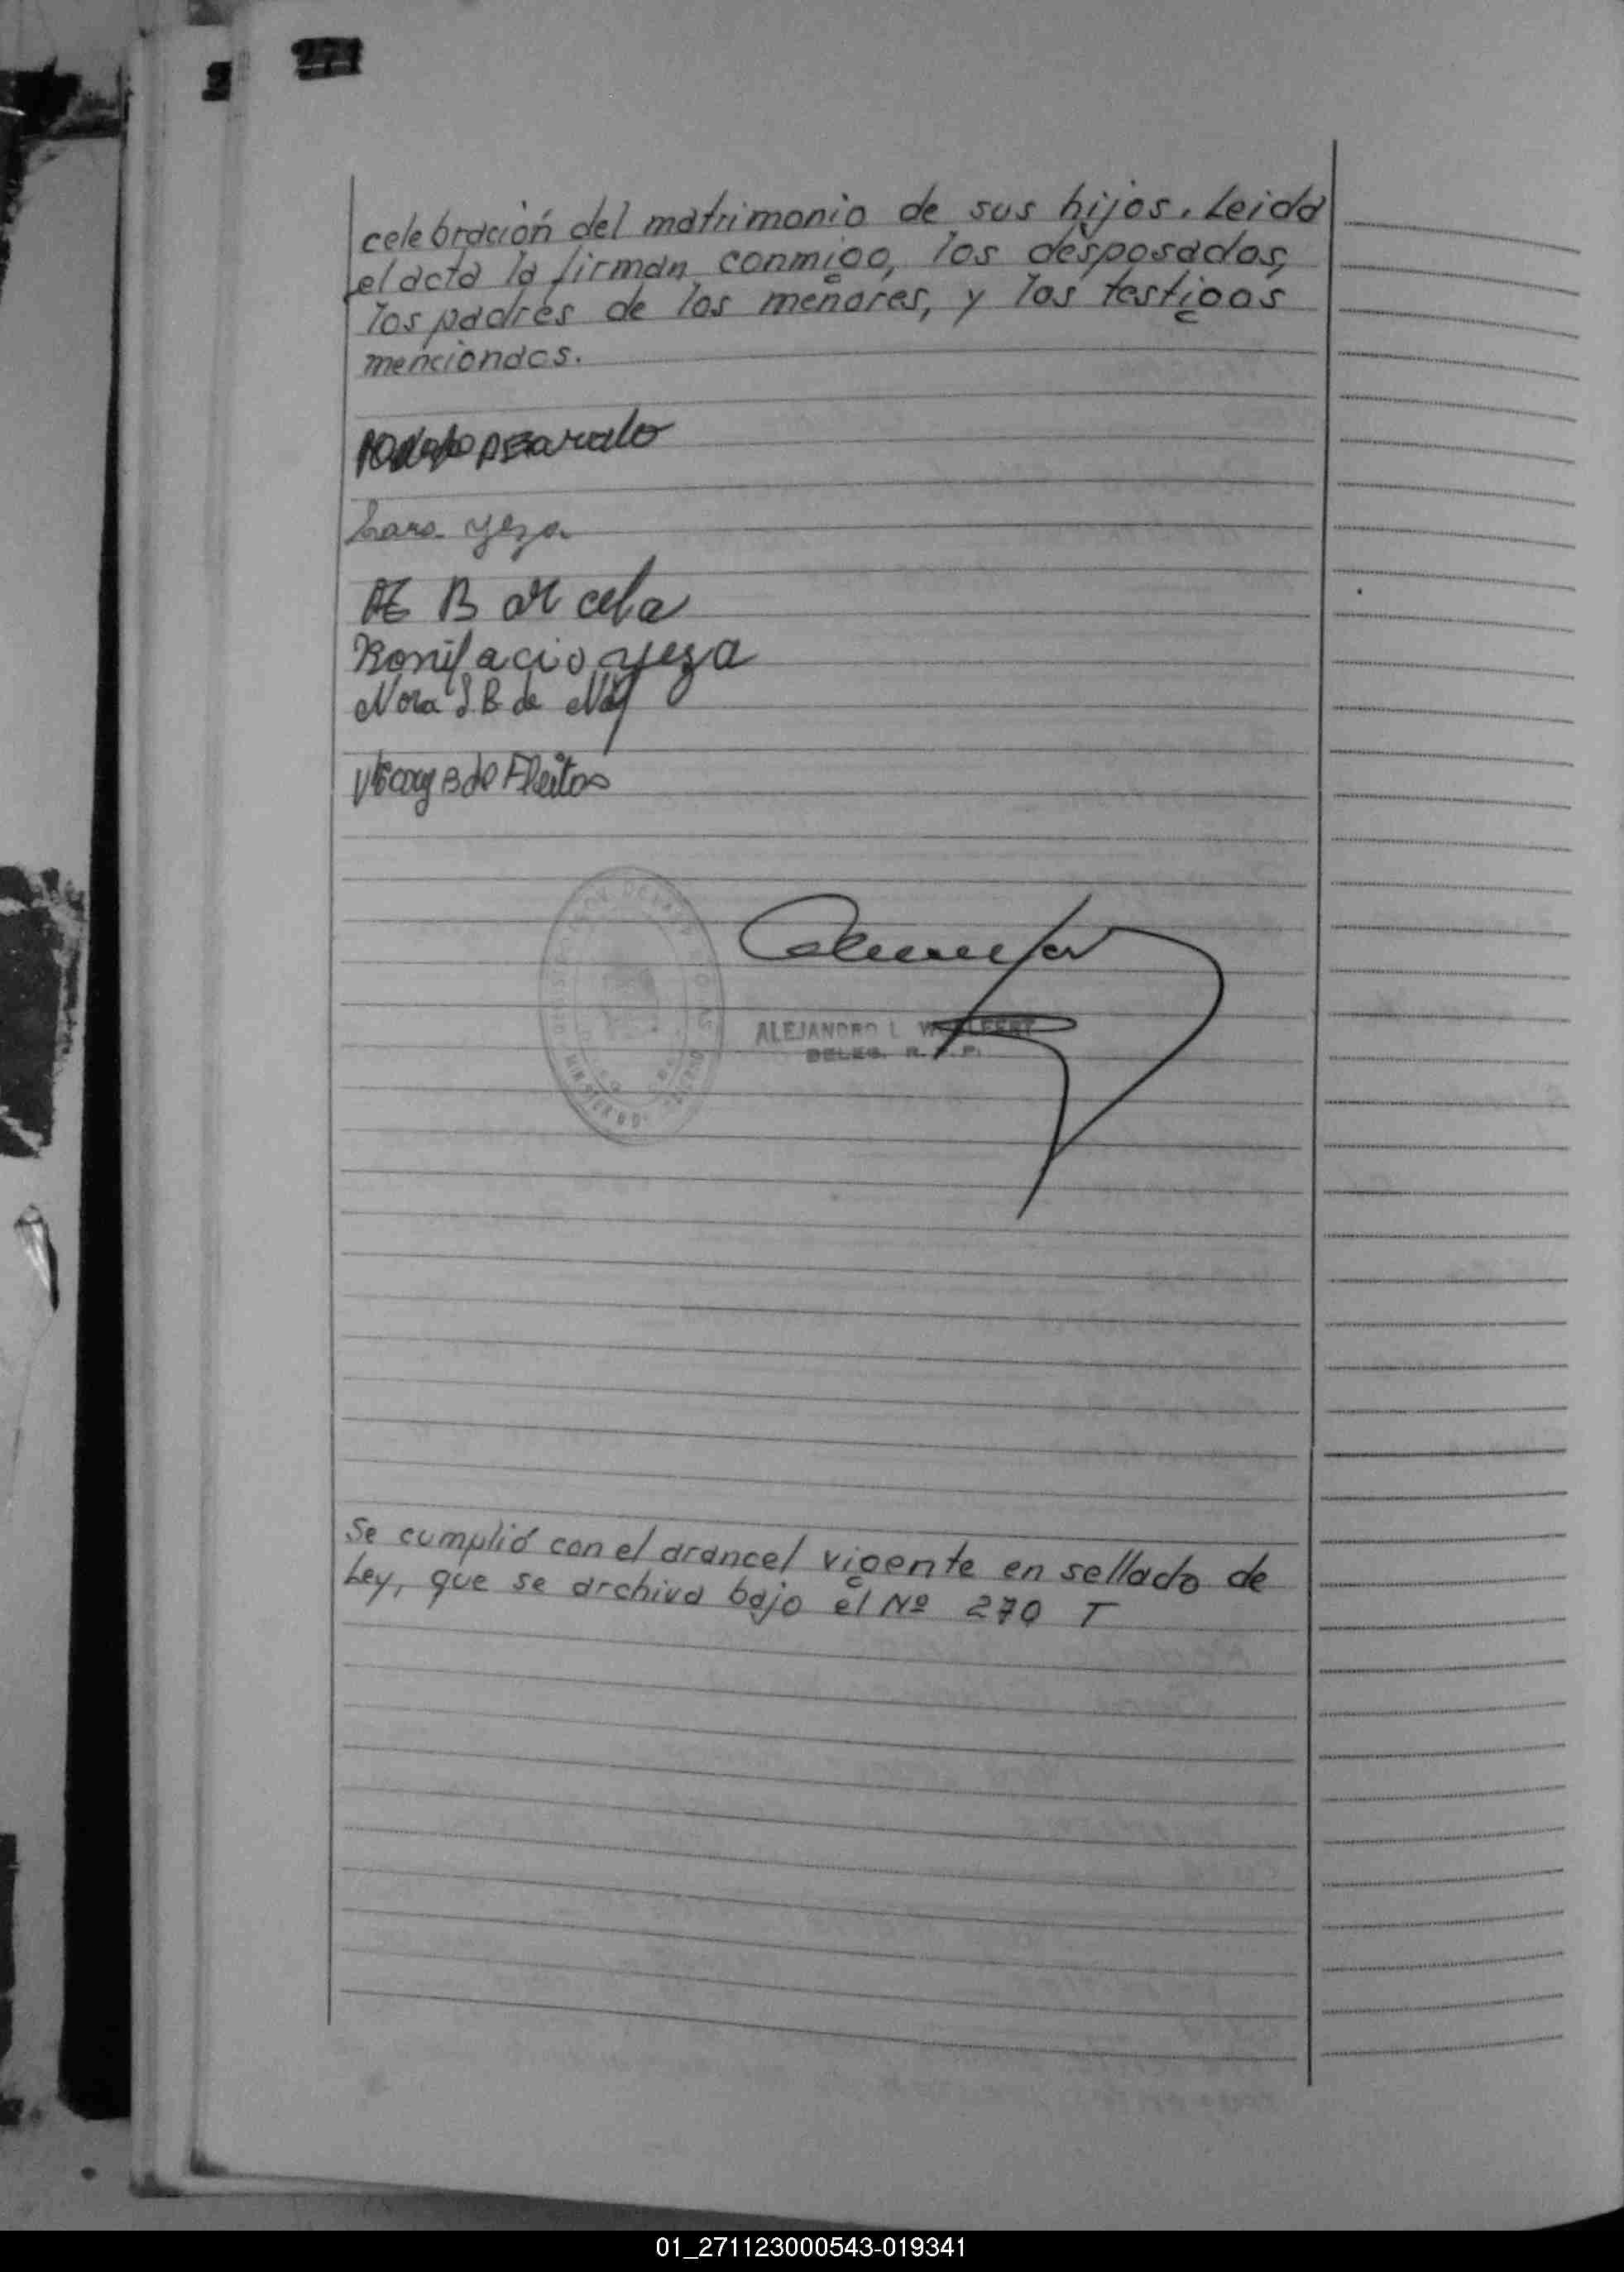 271
celebración del matrimonio de sus hijos. Leida
el acta la firman conmigo, los desposados,
los padres de los menores, y los testigos
menciondos.
Yeza
Bonifacio Yeza
Nora S.B de
B de Fleitas
ALEJANDRO L
DELEG. R. P.
Se cumplió con el arancel vigente en sellado de
Ley, que se archiva bajo el Nº 270 T
01_271123000543-019341